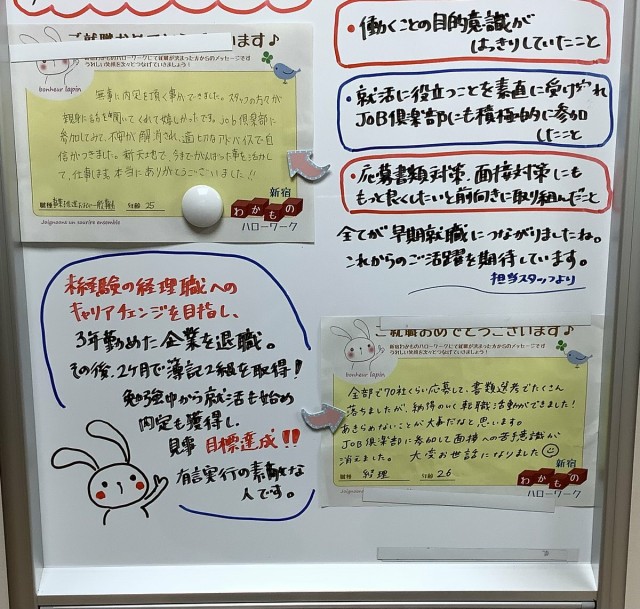 ご就職おめでとうございます♪
新宿わかものハローワークにて就職が決まった方からのメッセージです
うれしい笑顔を次々とつなげていきましょう!
bonheur lapin
無事に内定を頂く事ができました。スタッフの方々が
親身に話を聞いてくれて嬉しかったです。Job倶楽部に
参加してみて、不安が解消され、適切なアドバイスで自
信がつきました。新天地で、今までがんばった事を活かし
て、仕事します。本当にありがとうございました!!
職種
年齢 25
Joignons un sourire ensemble
新宿
わかもの
ハローワーク
・働くことの目的意識が
はっきりしていたこと
・就活に役立つことを素直に受け入れ
JOB倶楽部にも積極的に参加
したこと
・応募書類対策、面接対策にも
もっと良くしたいと前向きに取り組んだこと
全てが早期就職につながりましたね。
これからのご活躍を期待しています。
担当スタッフより
未経験の経理職への
キャリアチェンジを目指し、
3年勤めた企業を退職。
その後、2ヶ月で簿記2級を取得!
勉強中から就活も始め
内定も獲得し、
見事 目標達成!!
有言実行の素敵な
人です。
ご就職おめでとうございます♪
新宿わかものハローワークにて就職が決まった方からのメッセージです
うれしい笑顔を次々とつなげていきましょう!
bonheur lapin
全部で70社くらい応募して、書類選考でたくさん
落ちましたが、納得のいく転職活動ができました!
あきらめないことが大事だなと思います。
JOB倶楽部に参加して面接への苦手意識が
消えました。 大変お世話になりました
職種 経理 年齢 26
新宿
わかもの
ハローワーク